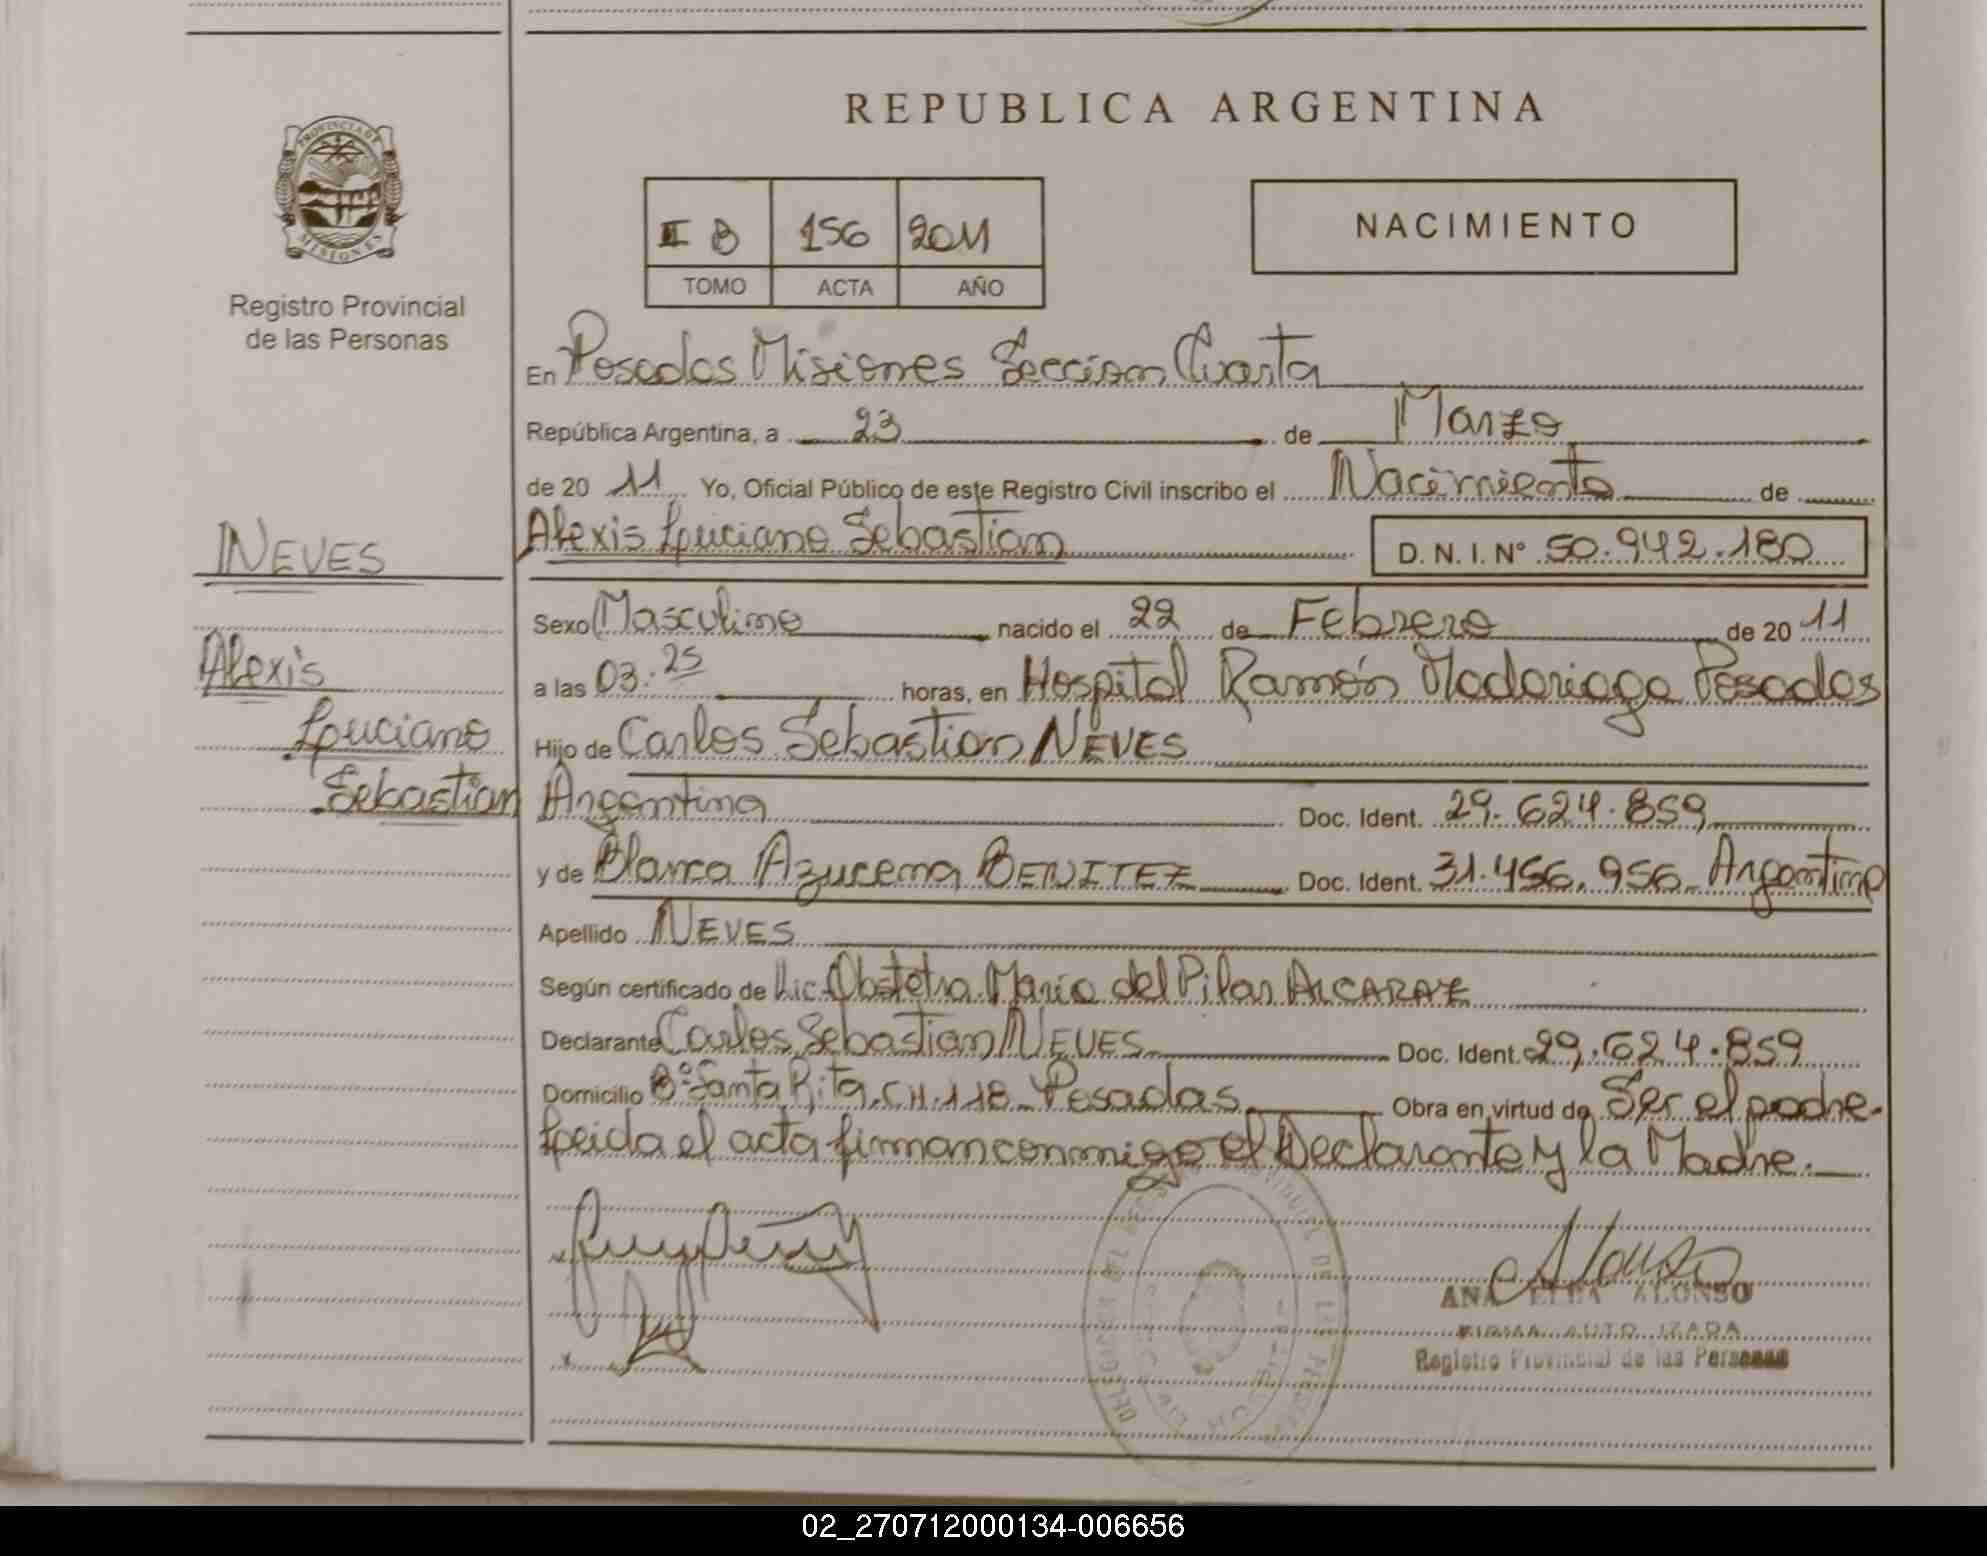 REPUBLICA ARGENTINA
PROVINCIA DE
MISIONES
Registro Provincial
de las Personas
II B 156 2011
TOMO ACTA AÑO
NACIMIENTO
En Posadas Misiones Seccion Cuarta
República Argentina, a 23 de Marzo
de 20 11 Yo, Oficial Público de este Registro Civil inscribo el Nacimiento de
NEVES
Alexis Luciano Sebastian D. N. I. N° 50.942.180
Sexo Masculino nacido el 22 de Febrero de 20 11
Alexis
a las 03:25 horas, en Hospital Ramón Madariaga Posadas
Luciano
Hijo de Carlos Sebastian NEVES
Sebastian
Argentina Doc. Ident. 29.624.859
y de Blanca Azucena BENITEZ Doc. Ident. 31.456.956 Argentina
Apellido NEVES
Según certificado de Lic. Obstetra Maria del Pilar ALCARAZ
Declarante Carlos Sebastian NEVES Doc. Ident. 29.624.859
Domicilio B° Santa Rita. CH. 118 Posadas Obra en virtud de Ser el padre.
Leida el acta firman conmigo el Declarante y la Madre.
ANA ELBA ALONSO
FIRMA AUTORIZADA
Registro Provincial de las Personas
02_270712000134-006656